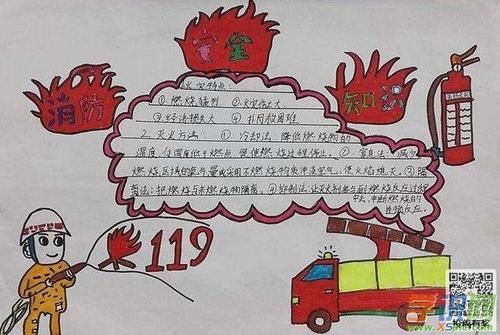 安全
消防
知识
火灾特点:
①燃烧猛烈 ②火灾危大
③经济损失大 ④扑救困难
2.灭火方法:①冷却法:降低燃烧物的
温度,使温度低于燃点,促使燃烧过程停止。②窒息法:减少
燃烧区域的氧气量或采用不燃烧物质冲淡空气,使火焰熄灭。③隔
离法:把燃烧点未燃烧物隔离。④抑制法:让灭火剂参与到燃烧反应过程
中去,中断燃烧的
连锁反应。
119